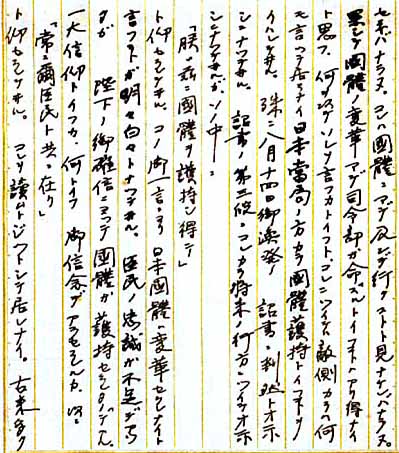 セネバナラヌ。コレハ國體ニマデ及ンデ行クコトト見ナケレバナラヌ。
シテ國體ノ変革マデ司令部ガ命ズルトイフコトハアリ得ナイ
ト思フ。何故ソレヲ言フカトイフト、コレニツイテハ敵側カラハ何
モ言ッテ居ラナイ日本當局ノ方カラ國體護持トイフコトヲ
イハレタ。殊ニ八月十四日御渙発ノ 詔書ニ判然トオ示
シニナッテヰル。 詔書ノ第二段ニコレカラ将来ノ行方ニツイテオ示
シニナッテヰルガソノ中ニ
「朕ハ茲ニ國體ヲ護持シ得テ」
ト仰セラレテヰル。コノ御一言ヨリ日本國體ハ変革セラレナイト
言フコトガ明々白々トナッテヰル。臣民ノ忠誠ガ不足デアッ
タガ 陛下ノ御確信ニヨッテ國體ガ護持セラレタノデアル。
一大信仰トイフカ、何トイフ 御信念デアラセラレルカ。次ニ
「常ニ爾臣民ト共ニ在リ」
ト仰セラレテヰル。 コレヲ讀ムトジットシテ居レナイ。古来多ク